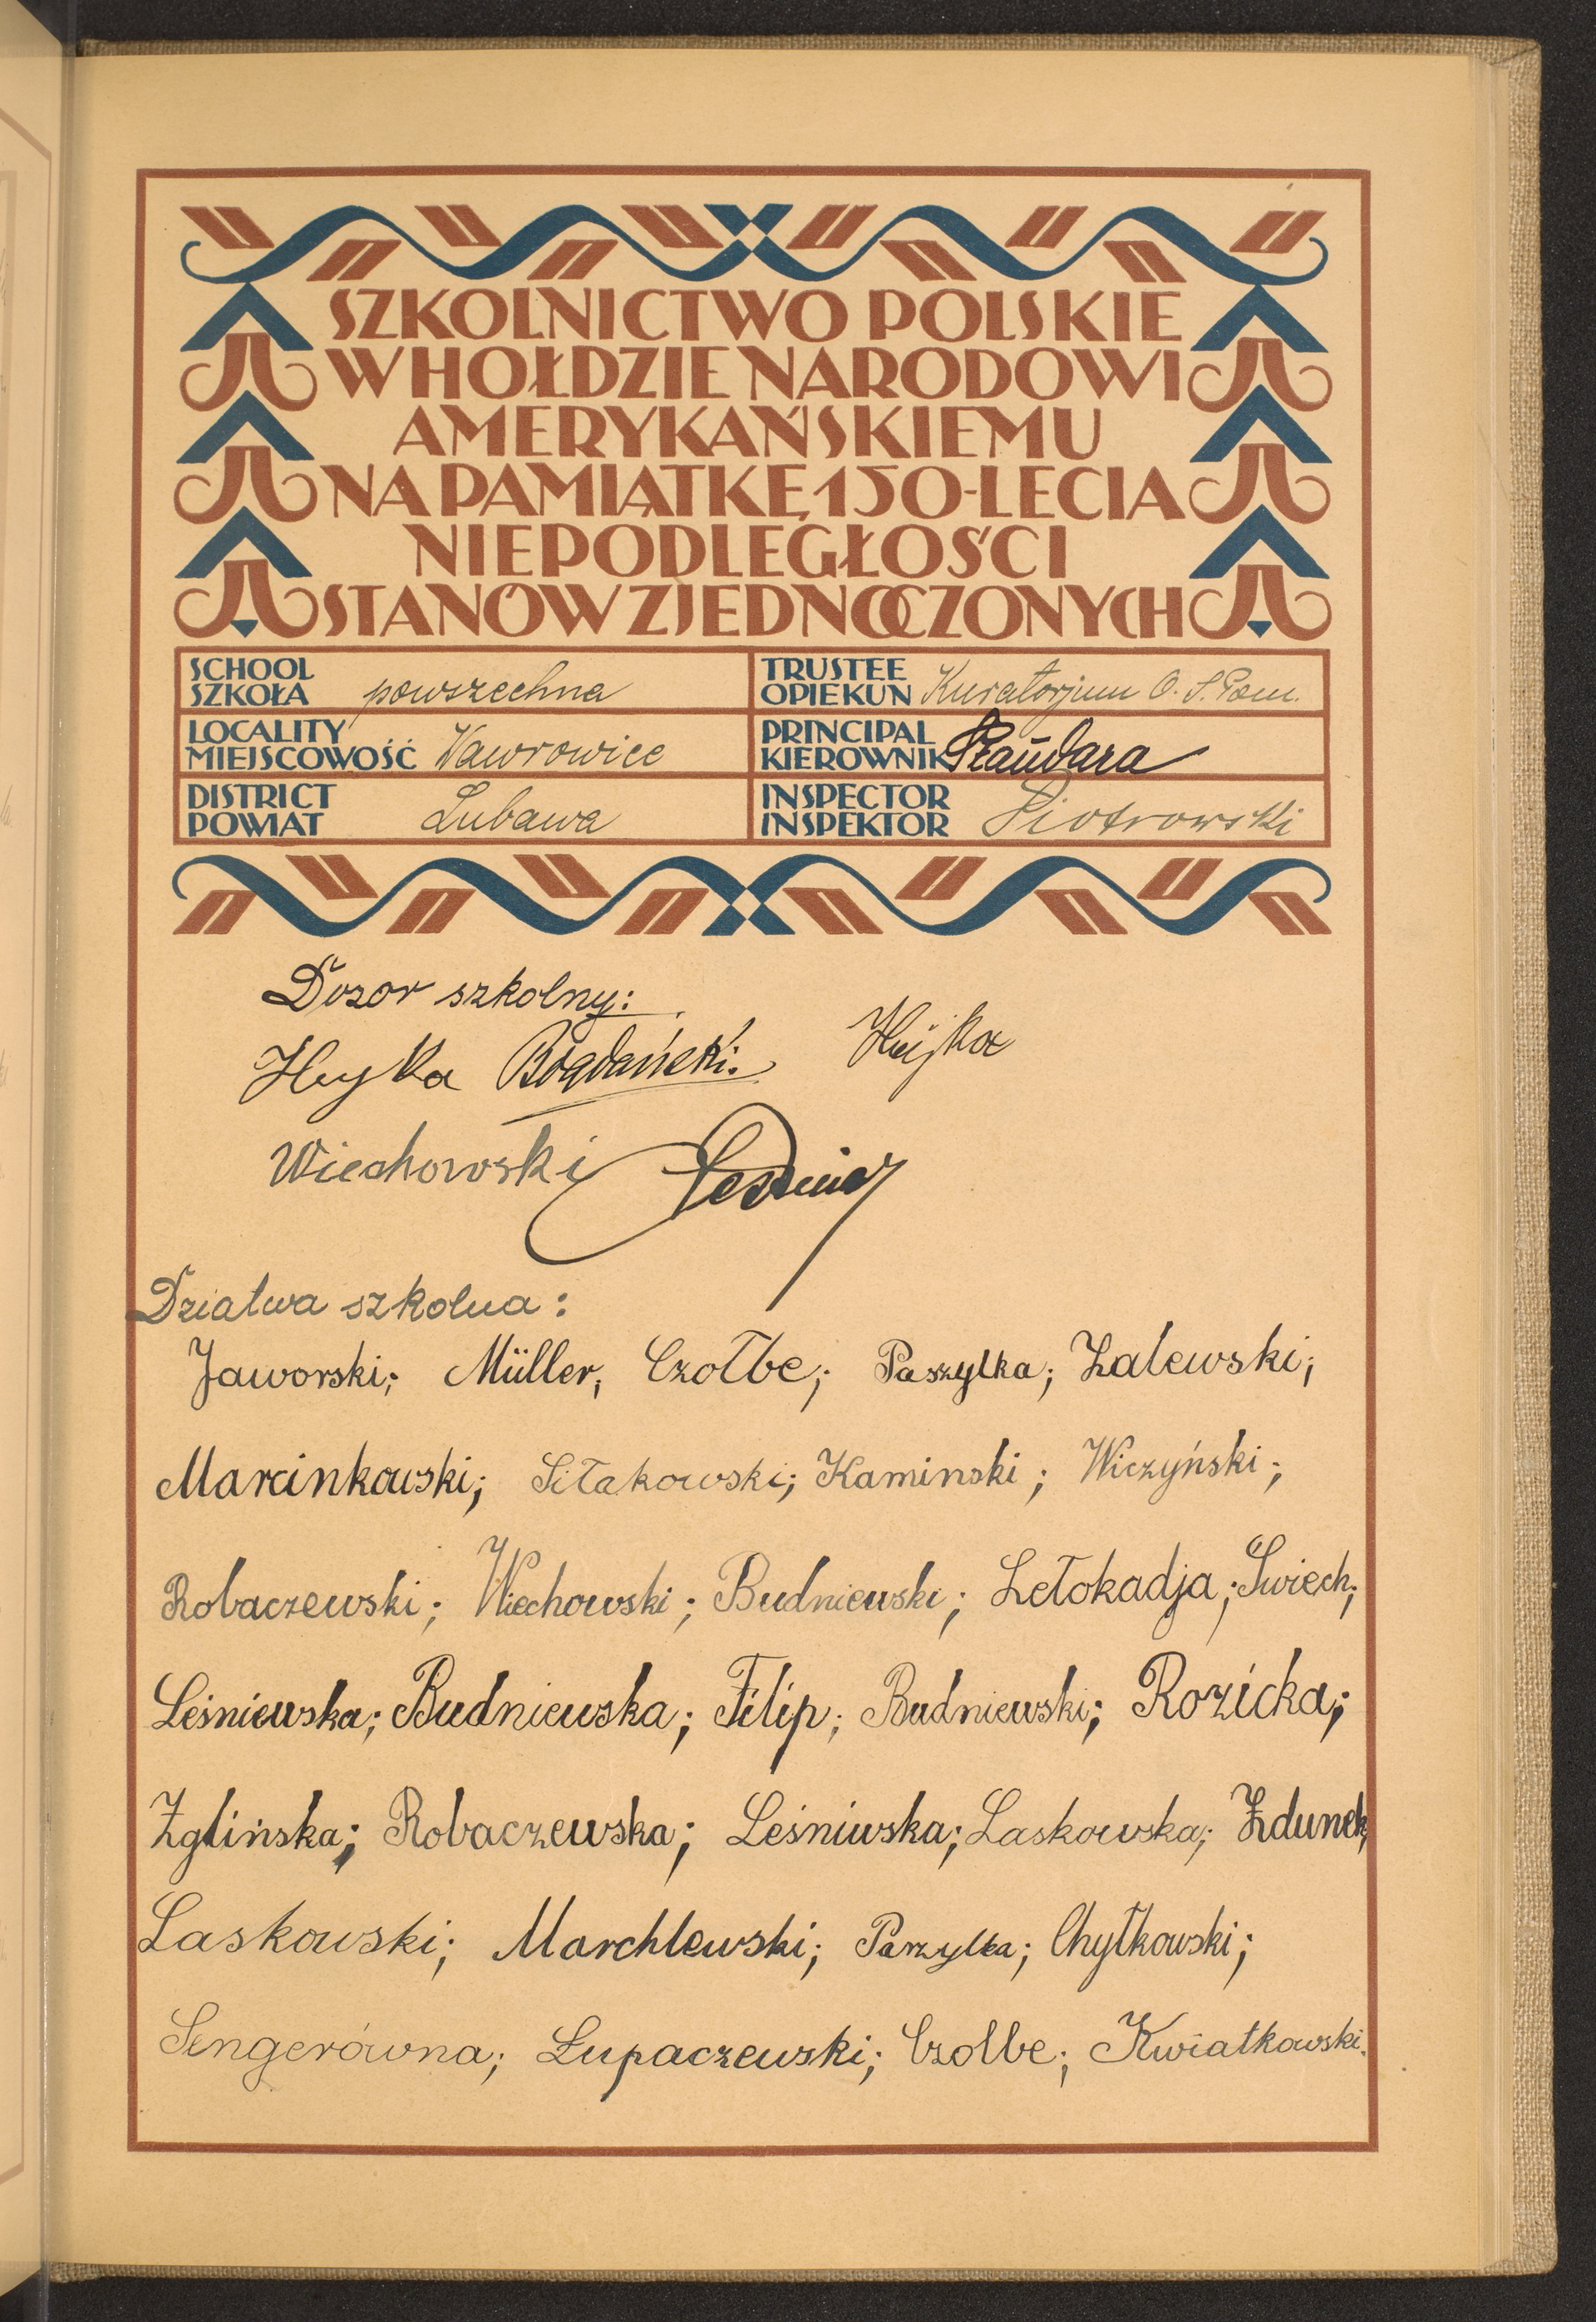 SZKOLNICTWO POLSKIE
W HOŁDZIE NARODOWI
AMERYKAŃSKIEMU
NA PAMIĄTKĘ 150-LECIA
NIEPODLEGŁOŚCI
STANÓW ZJEDNOCZONYCH
SCHOOL
SZKOŁA powszechna
TRUSTEE
OPIEKUN Kuratorjum O. S. Pom.
LOCALITY
MIEJSCOWOŚĆ Wawrowice
PRINCIPAL
KIEROWNIK
DISTRICT
POWIAT Lubawa
INSPECTOR
INSPEKTOR Piotrowski
Dozor szkolny:
Heyka Bogdański. Hejka
Wiechowski
Dziatwa szkolna:
Jaworski; Müller; Czołbe; Paszylka; Zalewski;
Marcinkowski; Siłakowski; Kaminski; Wiczyński;
Robaczewski; Wiechowski; Budniewski; Letokadja; Swiech;
Leśniewska; Budniewska; Filip; Budniewski; Rozicka;
Zglińska; Robaczewska; Leśniwska; Laskowska; Zdunek
Laskowski; Marchlewski; Parzylka; Chytkowski;
Sengerówna; Lupaczewski; Czolbe; Kwiatkowski.